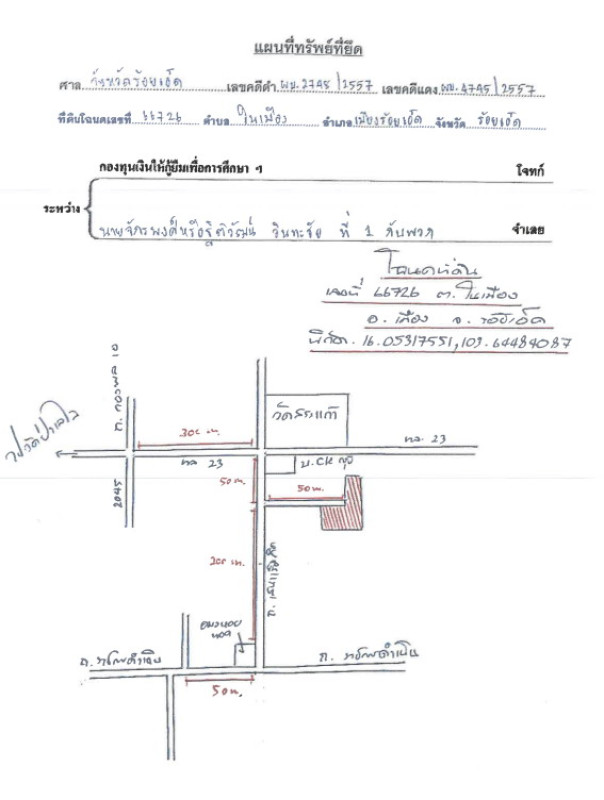 แผนที่ทรัพย์ที่ยึด
ศาล จังหวัดร้อยเอ็ด เลขคดีดำ ผบ.2795/2557 เลขคดีแดง ผบ.4795/2557
ที่ดินโฉนดเลขที่ 66726 ตำบล ในเมือง อำเภอ เมืองร้อยเอ็ด จังหวัด ร้อยเอ็ด
กองทุนเงินให้กู้ยืมเพื่อการศึกษา ฯ โจทก์
ระหว่าง
นายจักรพงศ์หรือฐิติวัฒน์ วินทะชัย ที่ 1 กับพวก จำเลย
โฉนดที่ดิน
เลขที่ 66726 ต. ในเมือง
อ. เมือง จ. ร้อยเอ็ด
พิกัด. 16.05317551,103.64484087
300 ม.
วัดสระแก้ว
ทล 23
ทล 23
2045
50 ม.
50 ม.
200 ม.
ถ.
ถ. ราชการดำเนิน
ถ. ราชการดำเนิน
50 ม.